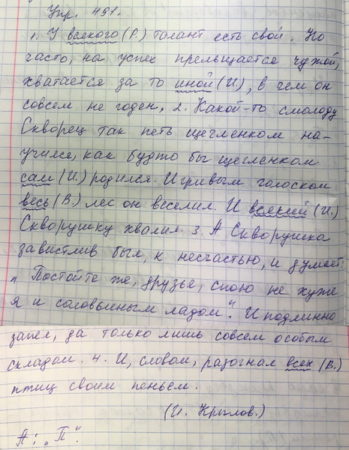 Упр. 491.
1. У всякого (Р.) талант есть свой. Но
часто, на успех прельщается чужой,
хватается за то иной (И.), в чем он
совсем не годен. 2. Какой-то смолоду
Скворец так петь щегленком на-
учился, как будто бы щегленком
сам (И.) родился. Игривым голоском
весь (В.) лес он веселил. И всякий (И.)
Скворушку хвалил. 3. А Скворушка
завистлив был, к несчастью, и думает:
„Постойте же, друзья, спою не хуже
я и соловьиным ладом". И подлинно
запел, да только лишь совсем особым
складом. 4. И, словом, разогнал всех (В.)
птиц своим пеньем.
(И. Крылов.)
А: „П".